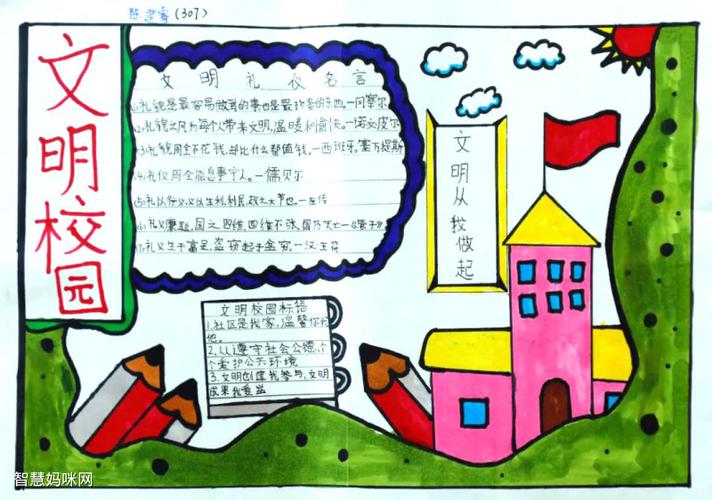 (307)
文明校园
文明礼仪名言
1.礼貌是最容易做到的事也是最珍贵的东西。—冈察尔
2.礼貌之风为每个人带来文明,温暖和愉快。—诺文皮尔
3.礼貌周全不花钱,却比什么都值钱。—西班牙。塞万提斯
4.礼仪周全能息事宁人。—儒贝尔
5.礼以行义,义以生利,利民,政之大节也。—左传
6.礼义廉耻,国之四维,四维不张,国乃灭亡—《管子》
7.礼义生于富足,盗窃起于贫穷—汉王符
文明从我做起
文明校园标语
1.社区是我家,温馨你我
他。
2.认遵守社会公德,个
个爱护公共环境
3.文明创建我参与,文明
成果我受益
智慧妈咪网